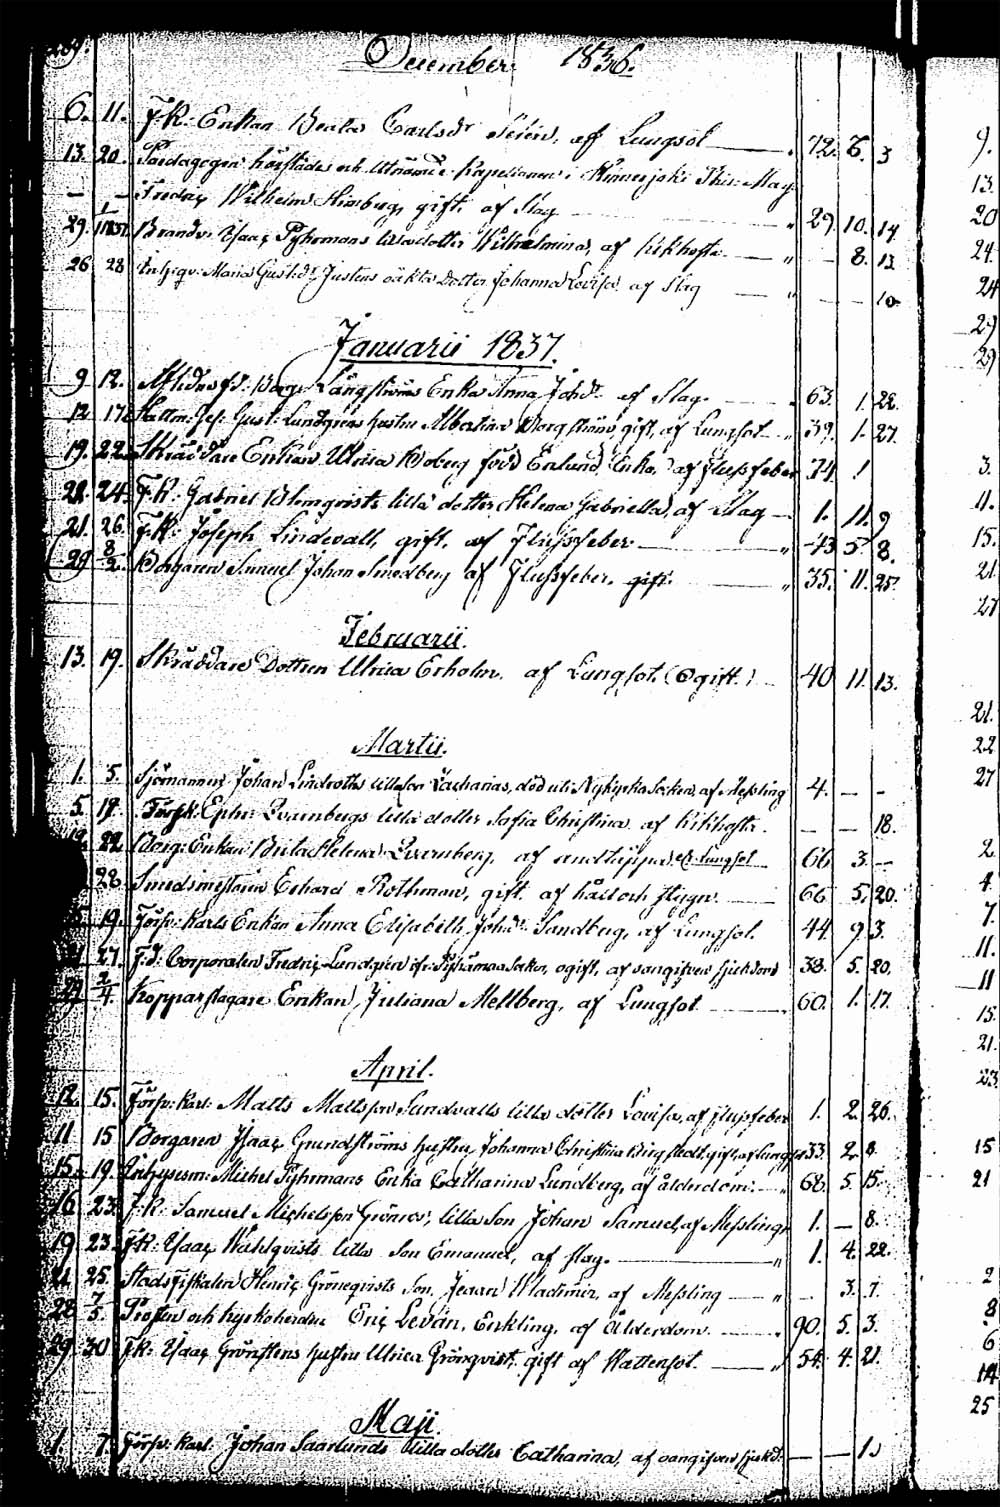 December 1836.
6. 11. F.K. Enkan Beata Carlsdr Serén, af Lungsot 72. 6. 3
13. 20. Pædagogen härstädes och Utnämde Kapellanen i Thir: Mag.
— — Fredric Wilhelm gift. af Slag 29. 10. 14
29. 1/1837. Brandv: Isaac Pyhrmans lilla dotter Wilhelmina, af Kikhosta — 8. 13
26 28 Inhysqv: Maria Gustdr Justens oäkta Dotter Johanna Lovisa af Slag — — 10
Januarii 1837.
9 12. Aflidne f.d. Borg: Långströms Enka Anna Johdr af Slag. 63. 1. 22.
12 17. Gust: Lundgrens hustru Albertina Bergström, gift, af Lungsot 39. 1. 27.
19. 22. Skräddare Enkan Ulrica Boberg född Enlund, Enka, af flussfeber 34. 1
22. 24. F.K: Gabriel Blomqvists lilla dotter Helena Gabriella, af Slag 1. 11. 9
21. 26. F.K: Joseph Lindevall, gift, af Flussfeber 43 5. 8.
29 8/2. Borgaren Samuel Johan Smedberg af Flussfeber. gift. 35. 11. 25.
Februarii.
13. 19. Skräddare Dottren Ulrica Erholm, af Lungsot. (Ogift.) 40 11. 13.
Martii.
1. 5. Sjömannen Johan Lindroths lilla son Zacharias, död uti Nykyrka Socken, af Messling 4. — —
5. 17. Försv.K. Ephr: Qvarnbergs lilla dotter Sofia Christina af Kikhosta. — — 18.
22. Borg: Enkan Brita Helena Qvarnberg, af andtäppa el. lungsot 66 3. —
28. Smedmästaren Erhard Rothman, gift. af håll och stygn. 66 5. 20.
19. Försv: Karls Enkan Anna Elisabeth Johdr Sandberg, af Lungsot. 44. 9 3.
27. F.d. Corporalen Fredric Lundgren ifr. Pyhämaa Socken, ogift, af oangifven sjukdom 38. 5. 20.
29 2/4. Kopparslagare Enkan, Juliana Mellberg, af Lungsot 60. 1. 17.
April.
12. 15. Försv: Karl: Matts Mattsson Sundvalls lilla dotter Lovisa, af flussfeber 1. 2. 26.
11. 15 Borgaren Isaac Grundströms hustru Johanna Christina Ringstedt, gift, af lungsot 33. 2. 8.
15. 19. Inhysesm: Michel Pyhrmans Enka Catharina Lundberg, af ålderdom. 68. 5. 15.
16 23. F.K: Samuel Michelsson Grönros, lilla Son Johan Samuel, af Messling 1. — 8.
19 23. F.K: Isaac Wahlqvists lilla Son Emanuel, af slag. 1. 4. 22.
21 25. Stadsfiskalen Henric Grönqvists Son, Jean Wladimir, af Messling — 3. 7.
28 7/5. Prosten och kyrkoherden Eric Levan, Enkling, af Ålderdom. 90. 5. 3.
29. 30 F.K: Isaac Grönstens hustru Ulrica Grönqvist, gift af Wattensot. 54. 4. 21.
Maji.
1. 7. Försv: Karl: Johan Saarlunds lilla dotter Catharina, af oangifven sjukd: — — 1.